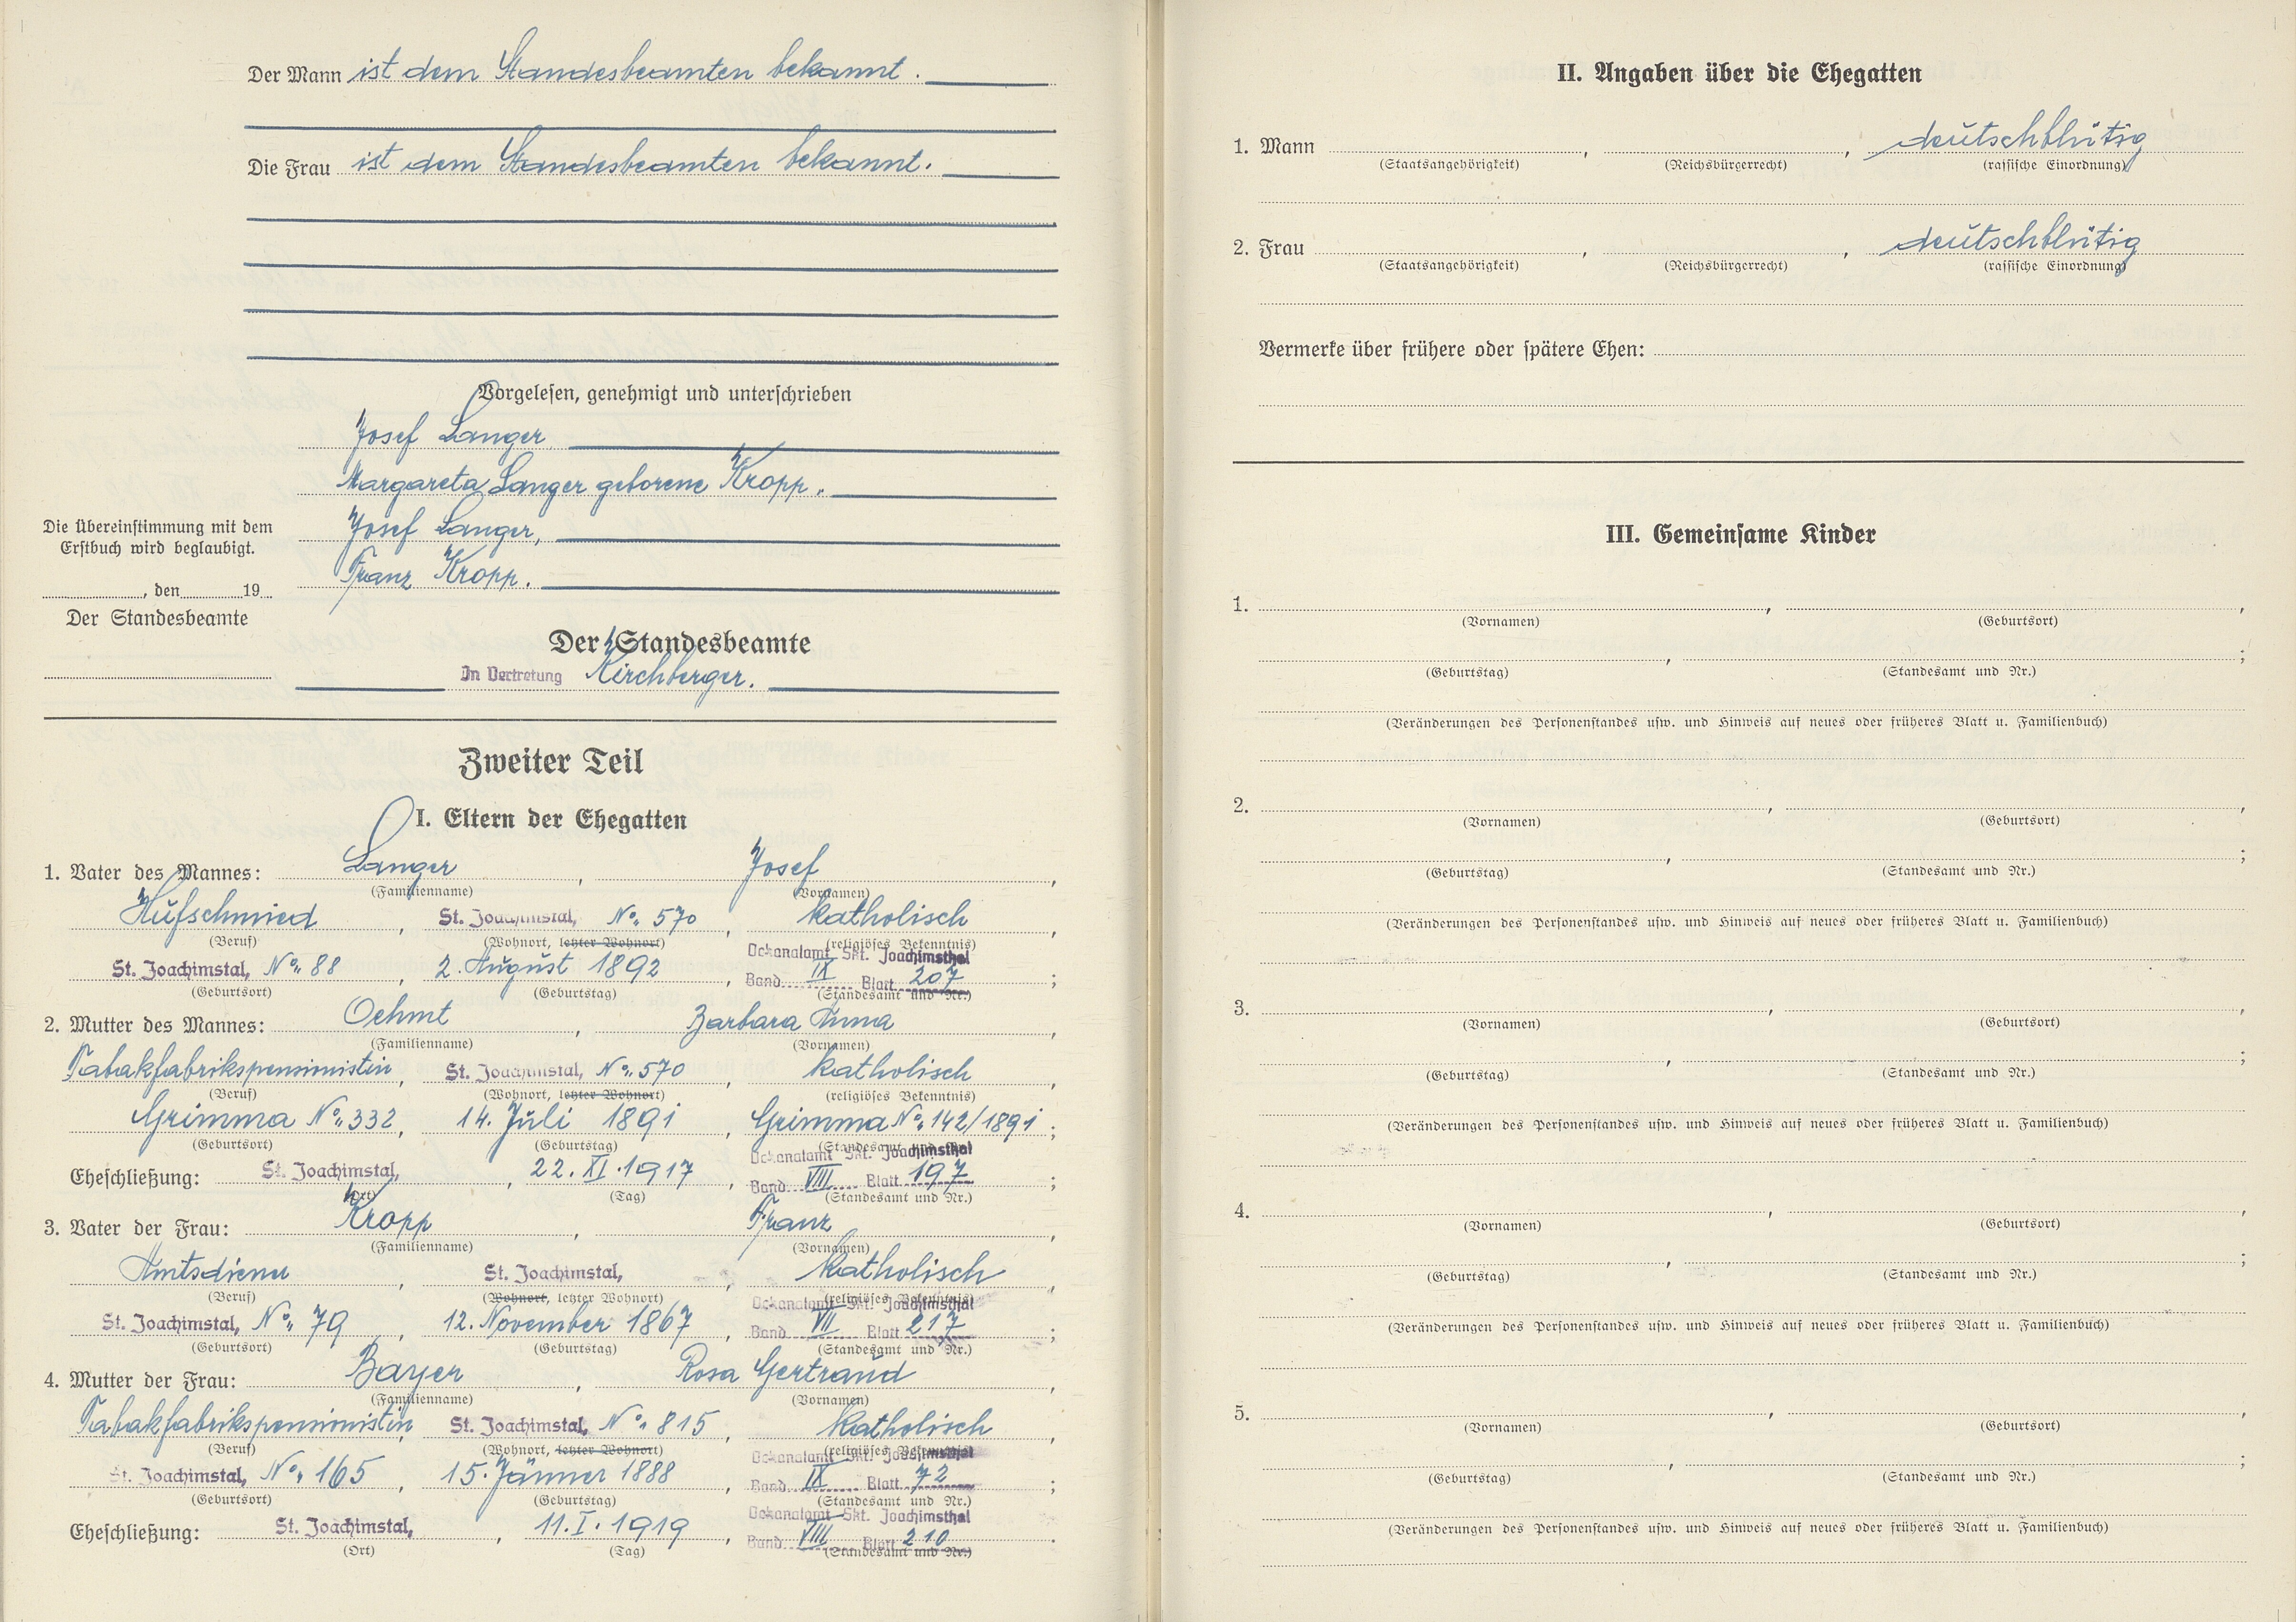 Der Mann ist dem Standesbeamten bekannt.
Die Frau ist dem Standesbeamten bekannt.
Vorgelesen, genehmigt und unterschrieben
Josef Langer
Margareta Langer geborene Kropp.
Josef Langer,
Franz Kropp.
Die Übereinstimmung mit dem
Erstbuch wird beglaubigt.
, den 19
Der Standesbeamte
Der Standesbeamte
In Vertretung Kirchberger.
Zweiter Teil
I. Eltern der Ehegatten
1. Vater des Mannes: Langer, Josef,
(Familienname) (Vornamen)
Hufschmied, St. Joachimstal, No. 570, katholisch,
(Beruf) (Wohnort, letzter Wohnort) (religiöses Bekenntnis)
Dekanalamt Skt. Joachimsthal
St. Joachimstal, No. 88, 2. August 1892, Band IX Blatt 207;
(Geburtsort) (Geburtstag) (Standesamt und Nr.)
2. Mutter des Mannes: Oehmt, Barbara Anna,
(Familienname) (Vornamen)
Tabakfabrikspensionistin, St. Joachimstal, No. 570, katholisch,
(Beruf) (Wohnort, letzter Wohnort) (religiöses Bekenntnis)
Grimma No. 332, 14. Juli 1891, Grimma No. 142/1891;
(Geburtsort) (Geburtstag) (Standesamt und Nr.)
Dekanalamt Skt. Joachimsthal
Eheschließung: St. Joachimstal, 22. XI. 1917, Band VIII Blatt 197;
(Ort) (Tag) (Standesamt und Nr.)
3. Vater der Frau: Kropp, Franz,
(Familienname) (Vornamen)
Amtsdiener, St. Joachimstal, katholisch,
(Beruf) (Wohnort, letzter Wohnort) (religiöses Bekenntnis)
Dekanalamt Skt. Joachimsthal
St. Joachimstal, No. 79, 12. November 1867, Band VII Blatt 217;
(Geburtsort) (Geburtstag) (Standesamt und Nr.)
4. Mutter der Frau: Bayer, Rosa Gertraud,
(Familienname) (Vornamen)
Tabakfabrikspensionistin, St. Joachimstal, No. 815, katholisch,
(Beruf) (Wohnort, letzter Wohnort) (religiöses Bekenntnis)
Dekanalamt Skt. Joachimsthal
St. Joachimstal, No. 165, 15. Jänner 1888, Band IX Blatt 72;
(Geburtsort) (Geburtstag) (Standesamt und Nr.)
Dekanalamt Skt. Joachimsthal
Eheschließung: St. Joachimstal, 11. I. 1919, Band VIII Blatt 210.
(Ort) (Tag) (Standesamt und Nr.)
II. Angaben über die Ehegatten
1. Mann , , deutschblütig
(Staatsangehörigkeit) (Reichsbürgerrecht) (rassische Einordnung)
2. Frau , , deutschblütig
(Staatsangehörigkeit) (Reichsbürgerrecht) (rassische Einordnung)
Vermerke über frühere oder spätere Ehen:
III. Gemeinsame Kinder
1. , ,
(Vornamen) (Geburtsort)
, ;
(Geburtstag) (Standesamt und Nr.)
(Veränderungen des Personenstandes usw. und Hinweis auf neues oder früheres Blatt u. Familienbuch)
2. , ,
(Vornamen) (Geburtsort)
, ;
(Geburtstag) (Standesamt und Nr.)
(Veränderungen des Personenstandes usw. und Hinweis auf neues oder früheres Blatt u. Familienbuch)
3. , ,
(Vornamen) (Geburtsort)
, ;
(Geburtstag) (Standesamt und Nr.)
(Veränderungen des Personenstandes usw. und Hinweis auf neues oder früheres Blatt u. Familienbuch)
4. , ,
(Vornamen) (Geburtsort)
, ;
(Geburtstag) (Standesamt und Nr.)
(Veränderungen des Personenstandes usw. und Hinweis auf neues oder früheres Blatt u. Familienbuch)
5. , ,
(Vornamen) (Geburtsort)
, ;
(Geburtstag) (Standesamt und Nr.)
(Veränderungen des Personenstandes usw. und Hinweis auf neues oder früheres Blatt u. Familienbuch)